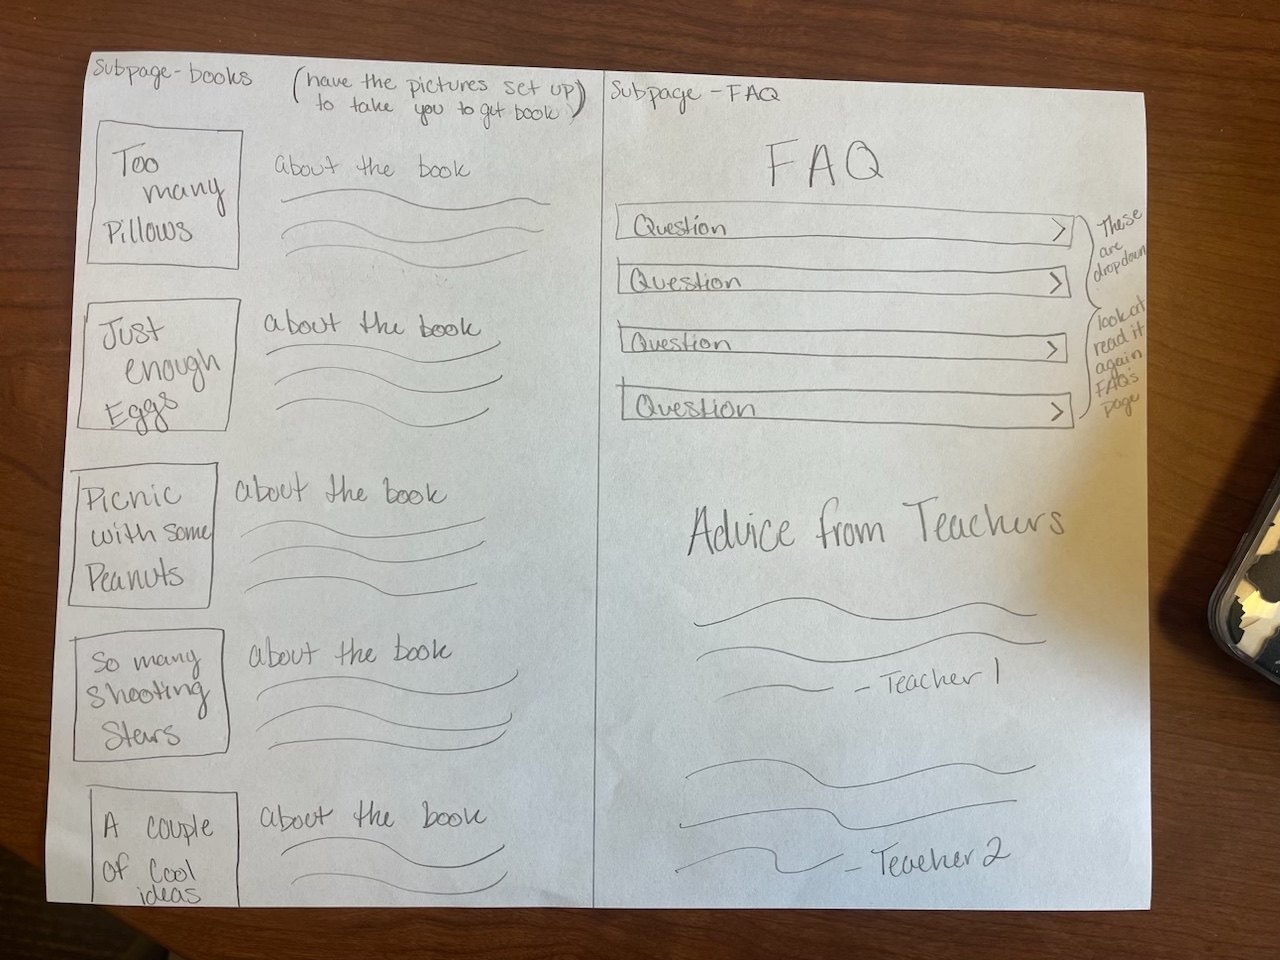 Subpage-books
(have the pictures set up)
to take you to get book
Too
many
Pillows
about the book
Just
enough
Eggs
about the book
Picnic
with some
Peanuts
about the book
So many
Shooting
Stars
about the book
A couple
of cool
ideas
about the book
Subpage-FAQ
FAQ
Question >
Question >
Question >
Question >
These
are
dropdown
look at
read it
again
FAQs
page
Advice from Teachers
- Teacher 1
- Teacher 2